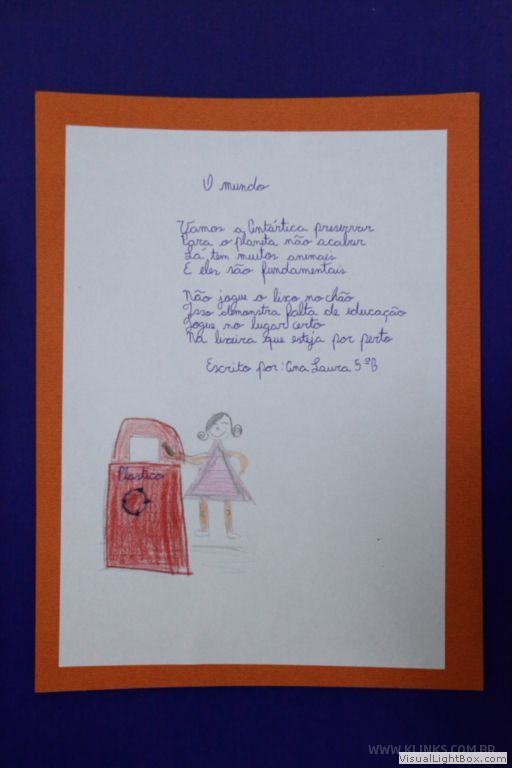 O mundo
Vamos a Antártica preservar
Para o planeta não acabar
Lá tem muitos animais
E eles são fundamentais
Não jogue o lixo no chão
Isso demonstra falta de educação
Jogue no lugar certo
Na lixeira que esteja por perto
Escrito por: Ana Laura 5ºB
Plástico
WWW.KLINKS.COM.BR
VisualLightBox.com